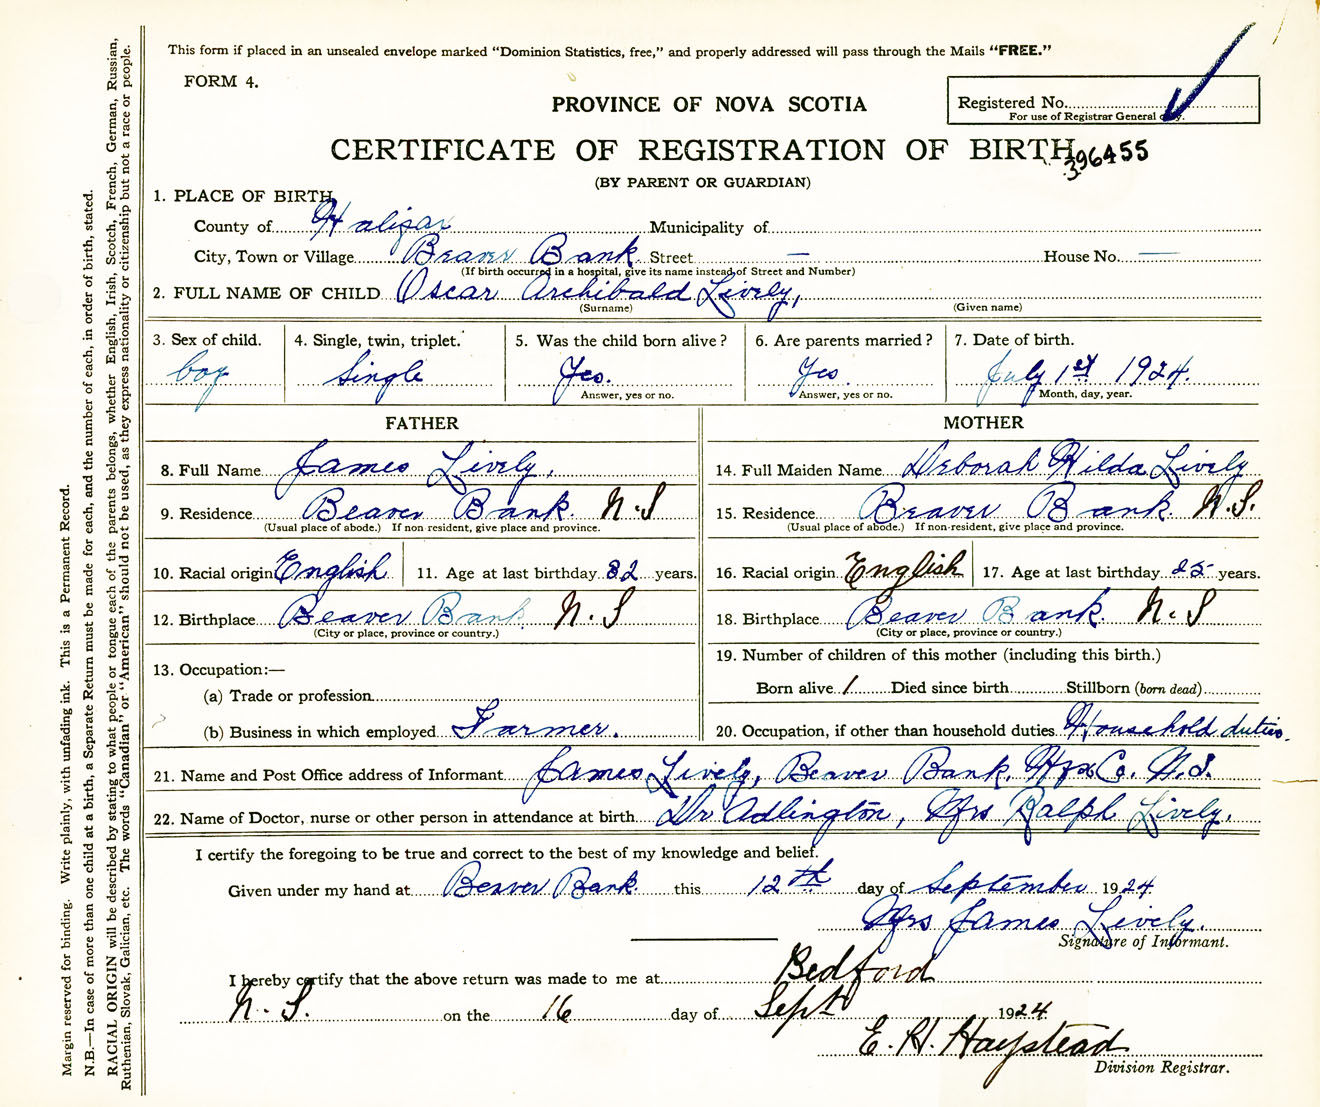 This form if placed in an unsealed envelope marked “Dominion Statistics, free,” and properly addressed will pass through the Mails “FREE.”
FORM 4.
PROVINCE OF NOVA SCOTIA
Registered No.
For use of Registrar General
CERTIFICATE OF REGISTRATION OF BIRTH
396455
(BY PARENT OR GUARDIAN)
1. PLACE OF BIRTH
County of Halifax Municipality of
City, Town or Village Beaver Bank Street — House No. —
(If birth occurred in a hospital, give its name instead of Street and Number)
2. FULL NAME OF CHILD Oscar Archibald Lively,
(Surname) (Given name)
3. Sex of child. 4. Single, twin, triplet. 5. Was the child born alive? 6. Are parents married? 7. Date of birth.
boy Single Yes. Yes. July 1st 1924.
Answer, yes or no. Answer, yes or no. Month, day, year.
FATHER MOTHER
8. Full Name James Lively. 14. Full Maiden Name Deborah Hilda Lively
9. Residence Beaver Bank. N.S 15. Residence Beaver Bank. N.S.
(Usual place of abode.) If non-resident, give place and province. (Usual place of abode.) If non-resident, give place and province.
10. Racial origin English 11. Age at last birthday 32 years. 16. Racial origin English 17. Age at last birthday 25 years.
12. Birthplace Beaver Bank. N.S 18. Birthplace Beaver Bank. N.S
(City or place, province or country.) (City or place, province or country.)
13. Occupation:— 19. Number of children of this mother (including this birth.)
(a) Trade or profession Born alive 1 Died since birth Stillborn (born dead)
(b) Business in which employed Farmer. 20. Occupation, if other than household duties Household duties.
21. Name and Post Office address of Informant James Lively, Beaver Bank, Hfx Co. N.S.
22. Name of Doctor, nurse or other person in attendance at birth Dr Adlington, Mrs Ralph Lively.
I certify the foregoing to be true and correct to the best of my knowledge and belief.
Given under my hand at Beaver Bank. this 12th day of September 1924
Mrs James Lively.
Signature of Informant.
I hereby certify that the above return was made to me at Bedford
N.S. on the 16 day of Sept 1924
E. H. Haystead
Division Registrar.
Margin reserved for binding. Write plainly, with unfading ink. This is a Permanent Record.
N.B.—In case of more than one child at a birth, a Separate Return must be made for each, and the number of each, in order of birth, stated.
RACIAL ORIGIN will be described by stating to what people or tongue each of the parents belongs, whether English, Irish, Scotch, French, German, Russian,
Ruthenian, Slovak, Galician, etc. The words “Canadian” or “American” should not be used, as they express nationality or citizenship but not a race or people.